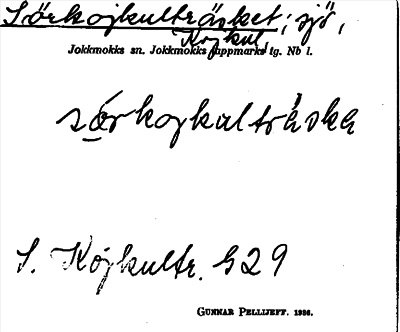 Sörkojkulträsket; sjö,
Kojkul,
Jokkmokks sn. Jokkmokks lappmarks tg. Nb l.
sörkojkulträska
S. Kojkultr. G29
GUNNAR PELLIJEFF. 1936.